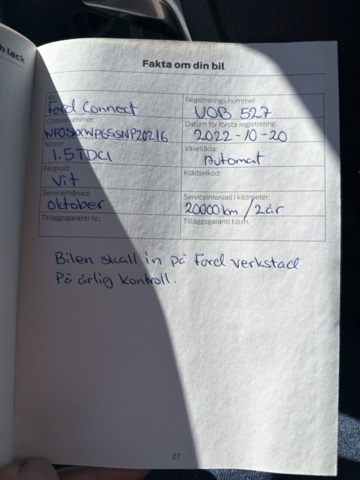 h lack
Fakta om din bil
Ford Connect
Registrerings nummer
UOB 527
Chassinummer:
Datum för första registrering:
2022-10-20
Motor:
1.5 TDCI
Växellåda:
Automat
Färgkod:
Vit
Klädselkod:
Servicemånad:
oktober
Serviceintervall i kilometer:
20000km / 2 år
Tilläggsgaranti nr.:
Tilläggsgaranti t.o.m.:
Bilen skall in på Ford verkstad
På årlig kontroll.
27